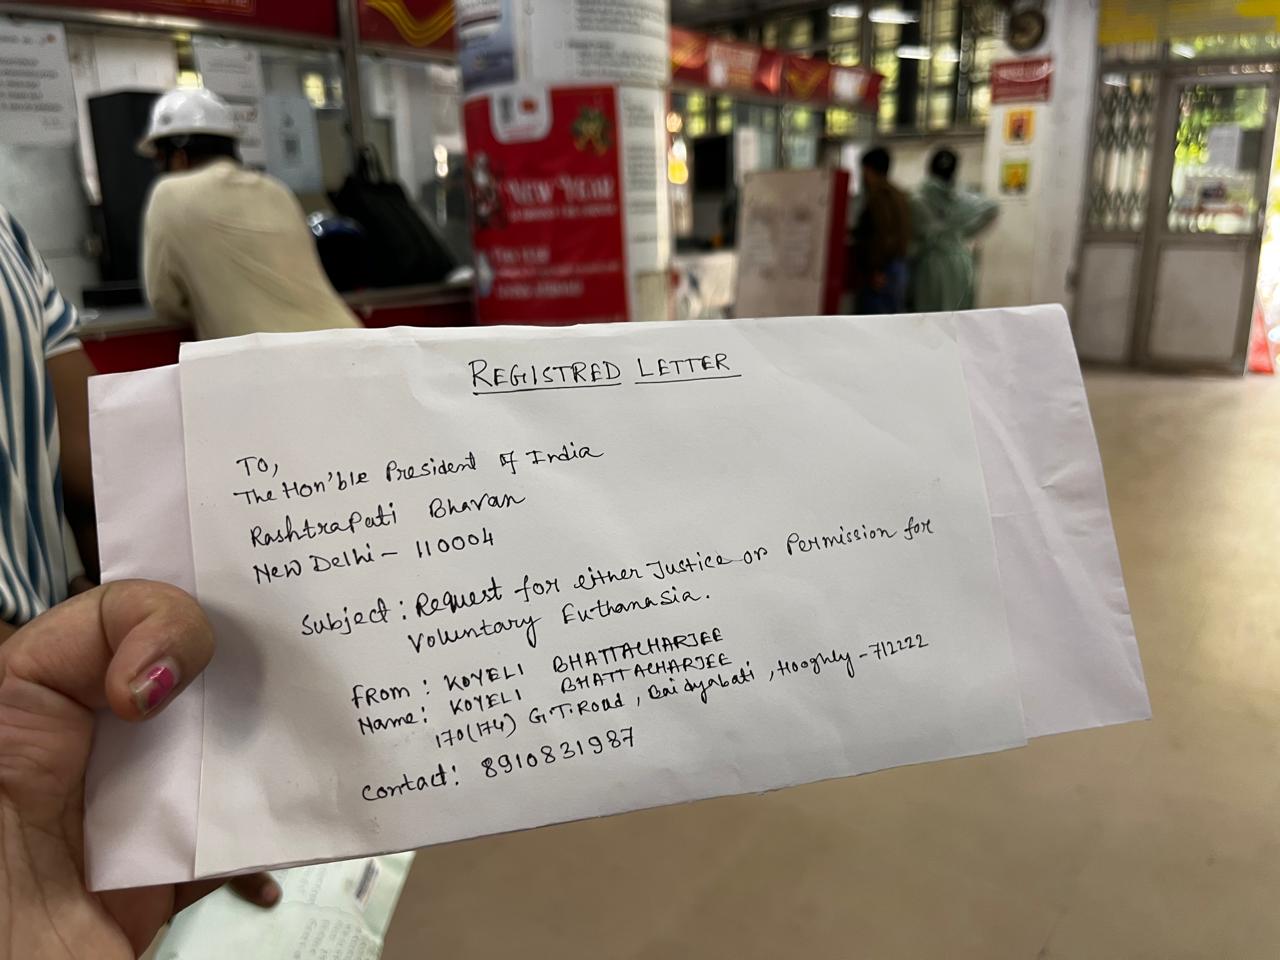 NEW YEAR
REGISTRED LETTER
TO,
The Hon'ble President of India
Rashtrapati Bhavan
New Delhi - 110004
Subject: Request for either Justice or Permission for
Voluntary Euthanasia.
From: KOYELI BHATTACHARJEE
Name: KOYELI BHATTACHARJEE
170(174) G.T. Road, Baidyabati, Hooghly - 712222
Contact: 8910831987